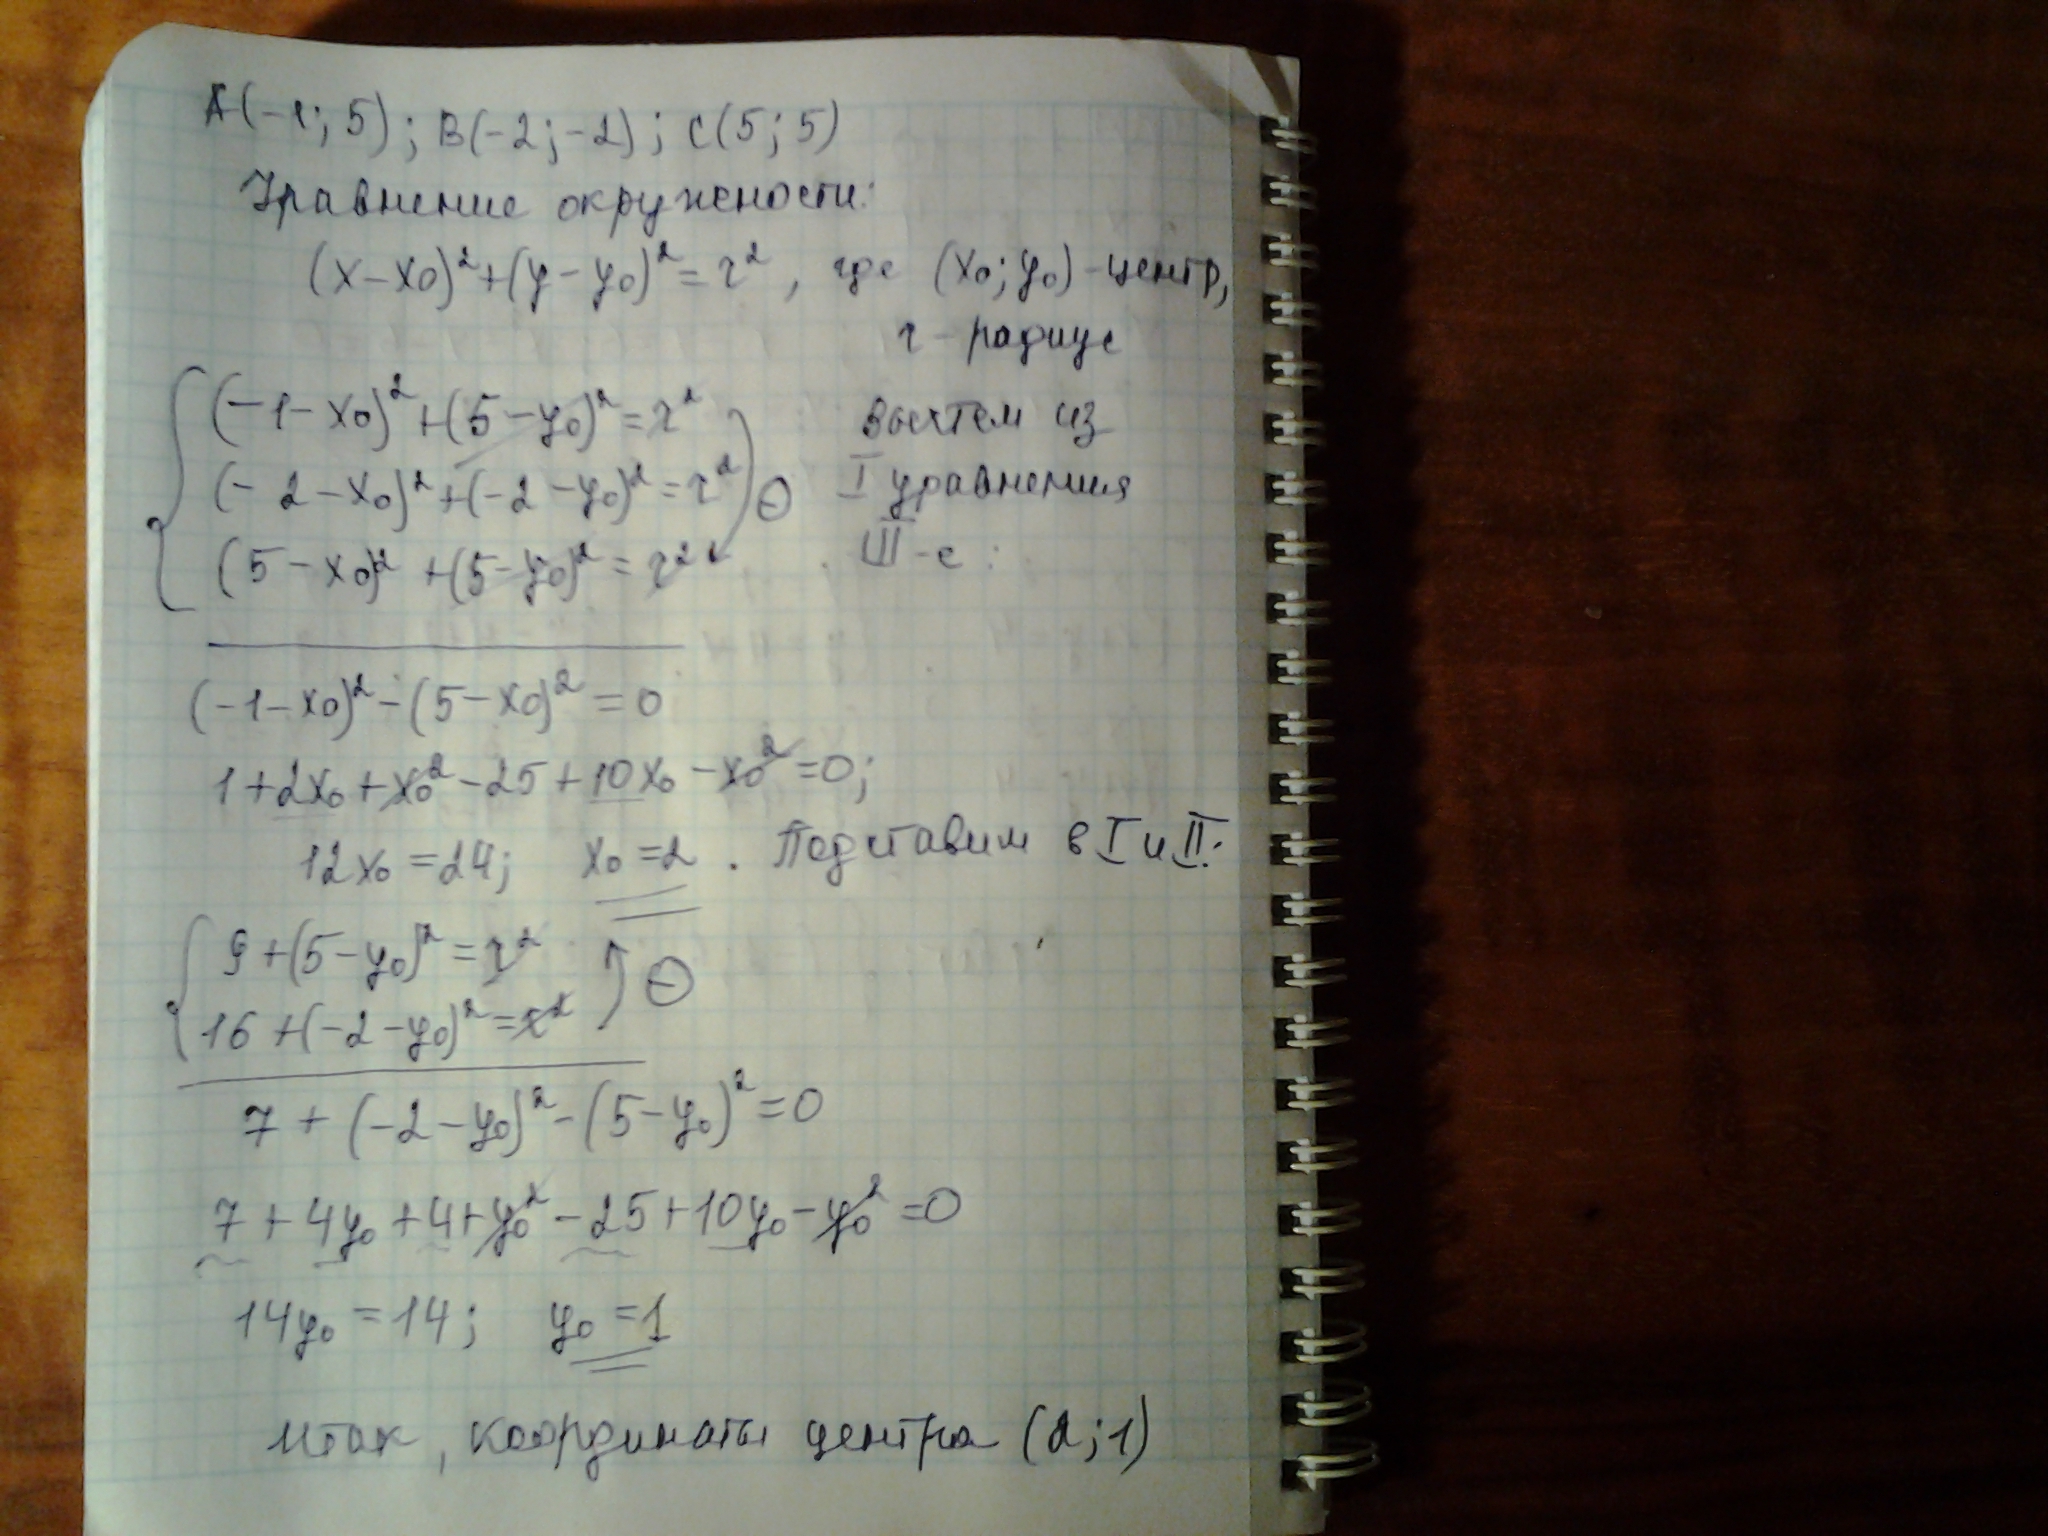 A(-1; 5); B(-2; -2); C(5; 5)
Уравнение окружности:
(x-x₀)²+(y-y₀)²=r², где (x₀; y₀)-центр,
r-радиус
(-1-x₀)²+(5-y₀)²=r² Вычтем из
(-2-x₀)²+(-2-y₀)²=r² ⊖ I уравнения
(5-x₀)²+(5-y₀)²=r² III-е:
(-1-x₀)²-(5-x₀)²=0
1+2x₀+x₀²-25+10x₀-x₀²=0;
12x₀=24; x₀=2. Подставим в I и II:
9+(5-y₀)²=r²
16+(-2-y₀)²=r² ⊖
7+(-2-y₀)²-(5-y₀)²=0
7+4y₀+4+y₀²-25+10y₀-y₀²=0
14y₀=14; y₀=1
Итак, координаты центра (2; 1)